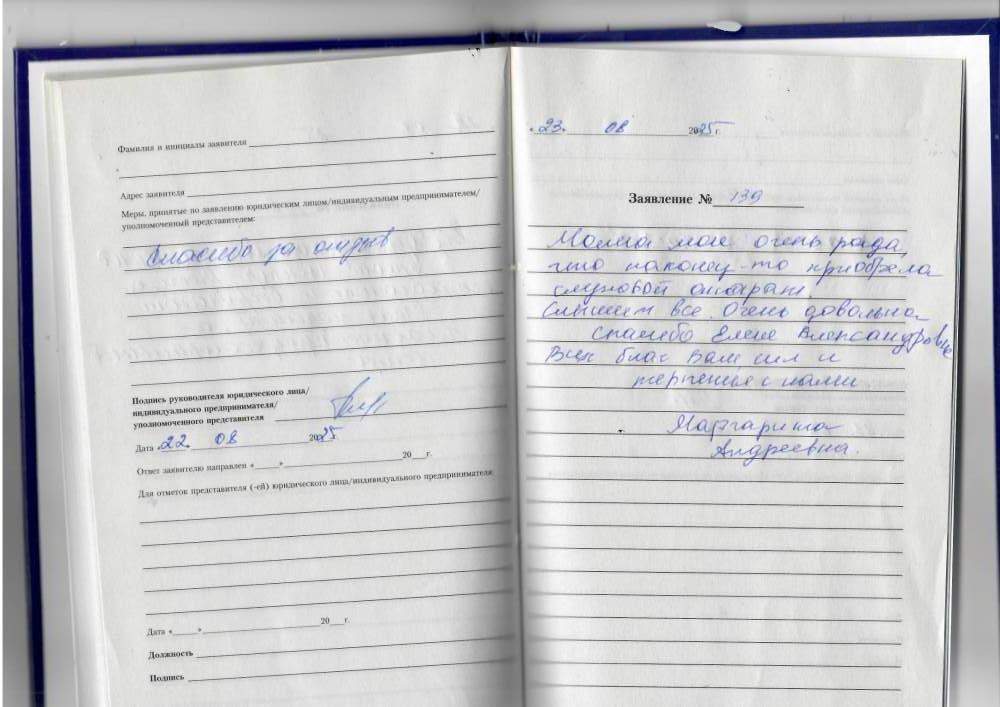 Фамилия и инициалы заявителя
Адрес заявителя
Меры, принятые по заявлению юридическим лицом/индивидуальным предпринимателем/
уполномоченный представителем:
Спасибо за отзыв
Подпись руководителя юридического лица/
индивидуального предпринимателя/
уполномоченного представителя
Дата «22» 08 2025
Ответ заявителю направлен «___» 20__г.
Для отметок представителя (-ей) юридического лица/индивидуального предпринимателя
Дата «___» 20__г.
Должность
Подпись
«23» 08 2025г.
Заявление № 139
Мама моя очень рада,
что наконец-то приобрела
слуховой аппарат.
Слышит все. Очень довольна
Спасибо Елене Александровне
Всех благ Вам сил и
терпенья с нами.
Маргарита
Андреевна.